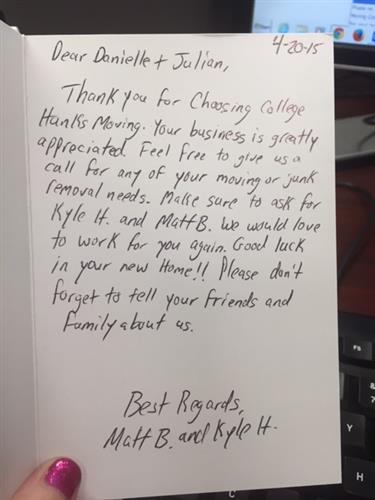 4-20-15
Dear Danielle + Julian,
Thank you for Choosing College
Hunks Moving. Your business is greatly
appreciated. Feel free to give us a
call for any of your moving or junk
removal needs. Make sure to ask for
Kyle H. and Matt B. We would love
to work for you again. Good luck
in your new Home!! Please don't
forget to tell your friends and
family about us.
Best Regards,
Matt B. and Kyle H.
F5
&
7
Y
H